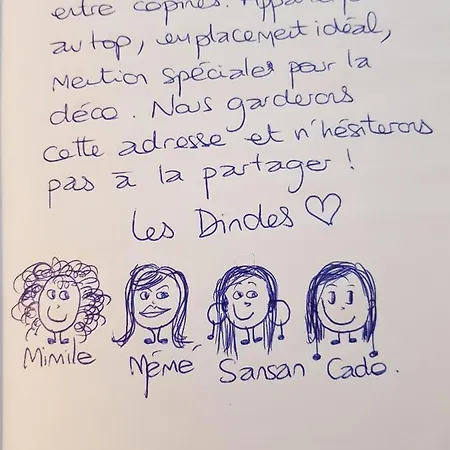 entre copines. Appart
au top, emplacement idéal,
mention spéciales pour la
déco. Nous garderons
cette adresse et n'hésiterons
pas à la partager !
Les Dindes ♡
Mimile Mémé Sansan Cado.